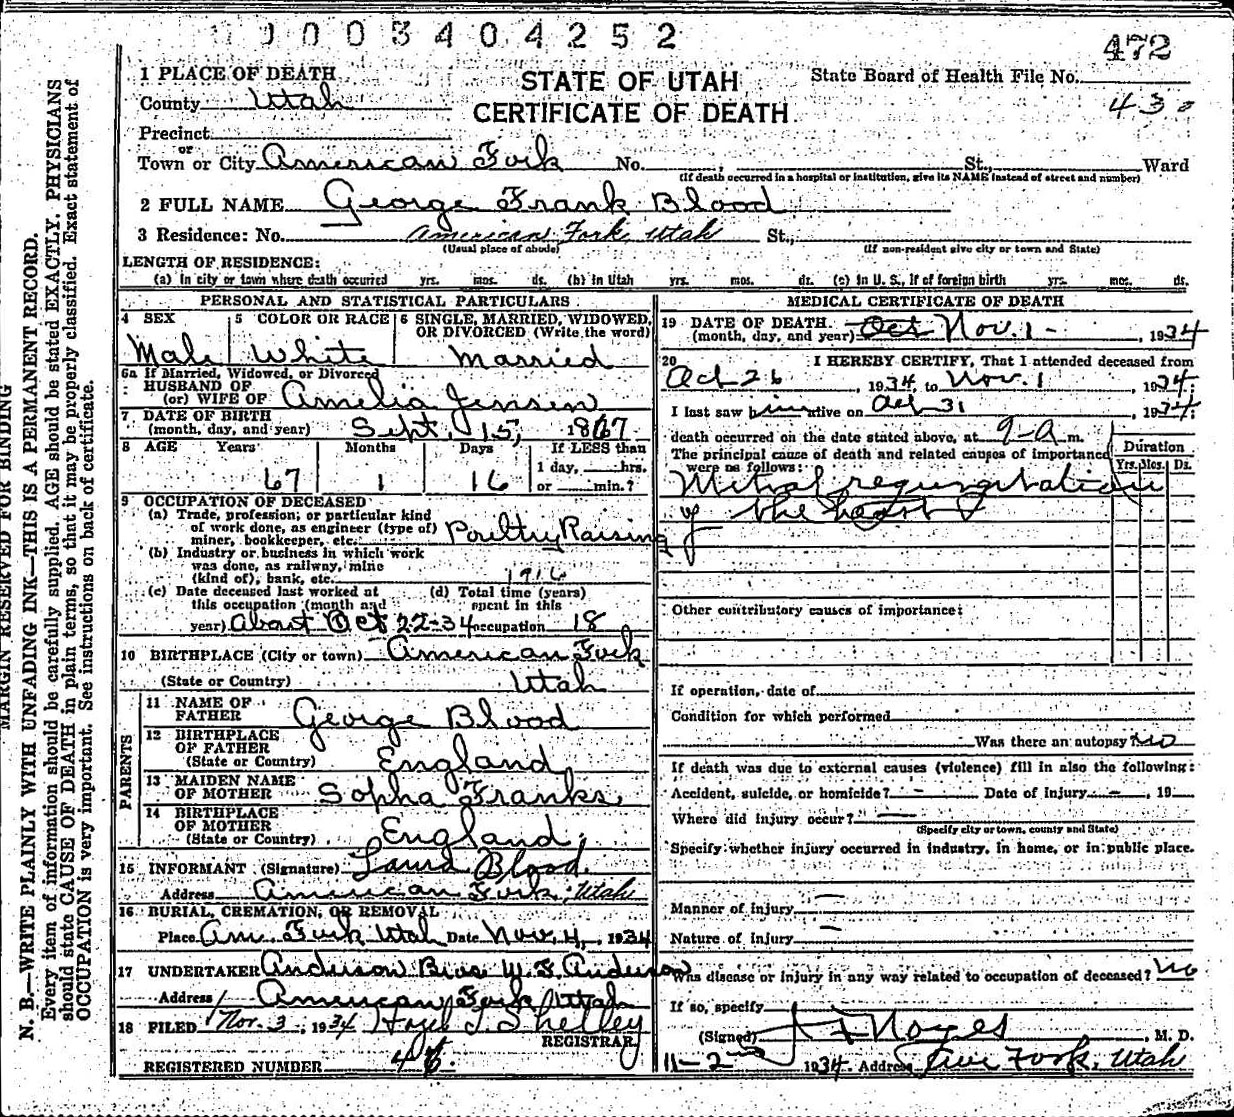 0003404252
472
1 PLACE OF DEATH
STATE OF UTAH
State Board of Health File No.
County Utah
CERTIFICATE OF DEATH
430
Precinct
or
Town or City American Fork No. St., Ward
(If death occurred in a hospital or institution, give its NAME instead of street and number)
2 FULL NAME George Frank Blood
3 Residence: No. American Fork, Utah St.,
(Usual place of abode) (If non-resident give city or town and State)
LENGTH OF RESIDENCE:
(a) In city or town where death occurred yrs. mos. ds. (b) In Utah yrs. mos. ds. (c) In U. S., if of foreign birth yrs. mos. ds.
PERSONAL AND STATISTICAL PARTICULARS
4 SEX 5 COLOR OR RACE 6 SINGLE, MARRIED, WIDOWED, OR DIVORCED (Write the word)
Male White Married
6a If Married, Widowed, or Divorced
HUSBAND OF
(or) WIFE OF Amelia Jensen
7 DATE OF BIRTH
(month, day, and year) Sept. 15, 1867
8 AGE Years Months Days If LESS than
67 1 16 1 day, hrs.
or min.?
9 OCCUPATION OF DECEASED
(a) Trade, profession, or particular kind
of work done, as engineer (type of)
miner, bookkeeper, etc. Poultry Raising
(b) Industry or business in which work
was done, as railway, mine
(kind of), bank, etc. 1916
(c) Date deceased last worked at (d) Total time (years)
this occupation (month and spent in this
year) About Oct 22-34 occupation 18
10 BIRTHPLACE (City or town) American Fork
(State or Country) Utah
PARENTS
11 NAME OF
FATHER George Blood
12 BIRTHPLACE
OF FATHER
(State or Country) England
13 MAIDEN NAME
OF MOTHER Sopha Franks
14 BIRTHPLACE
OF MOTHER
(State or Country) England
15 INFORMANT (Signature) Blood
Address American Fork, Utah
16 BURIAL, CREMATION, OR REMOVAL
Place Am. Fork Utah Date Nov. 4, 1934
17 UNDERTAKER Anderson Bros W. F. Anderson
Address American Fork Utah
18 FILED Nov. 3, 1934 Hazel J. Shelley
REGISTRAR
REGISTERED NUMBER
MEDICAL CERTIFICATE OF DEATH
19 DATE OF DEATH.
(month, day, and year) Oct Nov. 1 - , 1934
20 I HEREBY CERTIFY, That I attended deceased from
Oct 26, 1934, to Nov. 1, 1934.
I last saw him alive on Oct 31, 1934.
death occurred on the date stated above, at 9-a m.
The principal cause of death and related causes of importance
were as follows:
Duration
Yrs. Mos. Ds.
Mitral regurgitation
of the heart
Other contributory causes of importance:
If operation, date of
Condition for which performed
Was there an autopsy? No
If death was due to external causes (violence) fill in also the following:
Accident, suicide, or homicide? - Date of injury - , 19
Where did injury occur? —
(Specify city or town, county and State)
Specify whether injury occurred in industry, in home, or in public place.
Manner of injury —
Nature of injury —
Was disease or injury in any way related to occupation of deceased? No
If so, specify
(Signed) Noyes, M. D.
11-2 1934. Address Fork, Utah
MARGIN RESERVED FOR BINDING
N. B.—WRITE PLAINLY WITH UNFADING INK—THIS IS A PERMANENT RECORD.
Every item of information should be carefully supplied. AGE should be stated EXACTLY. PHYSICIANS
should state CAUSE OF DEATH in plain terms, so that it may be properly classified. Exact statement of
OCCUPATION is very important. See instructions on back of certificate.